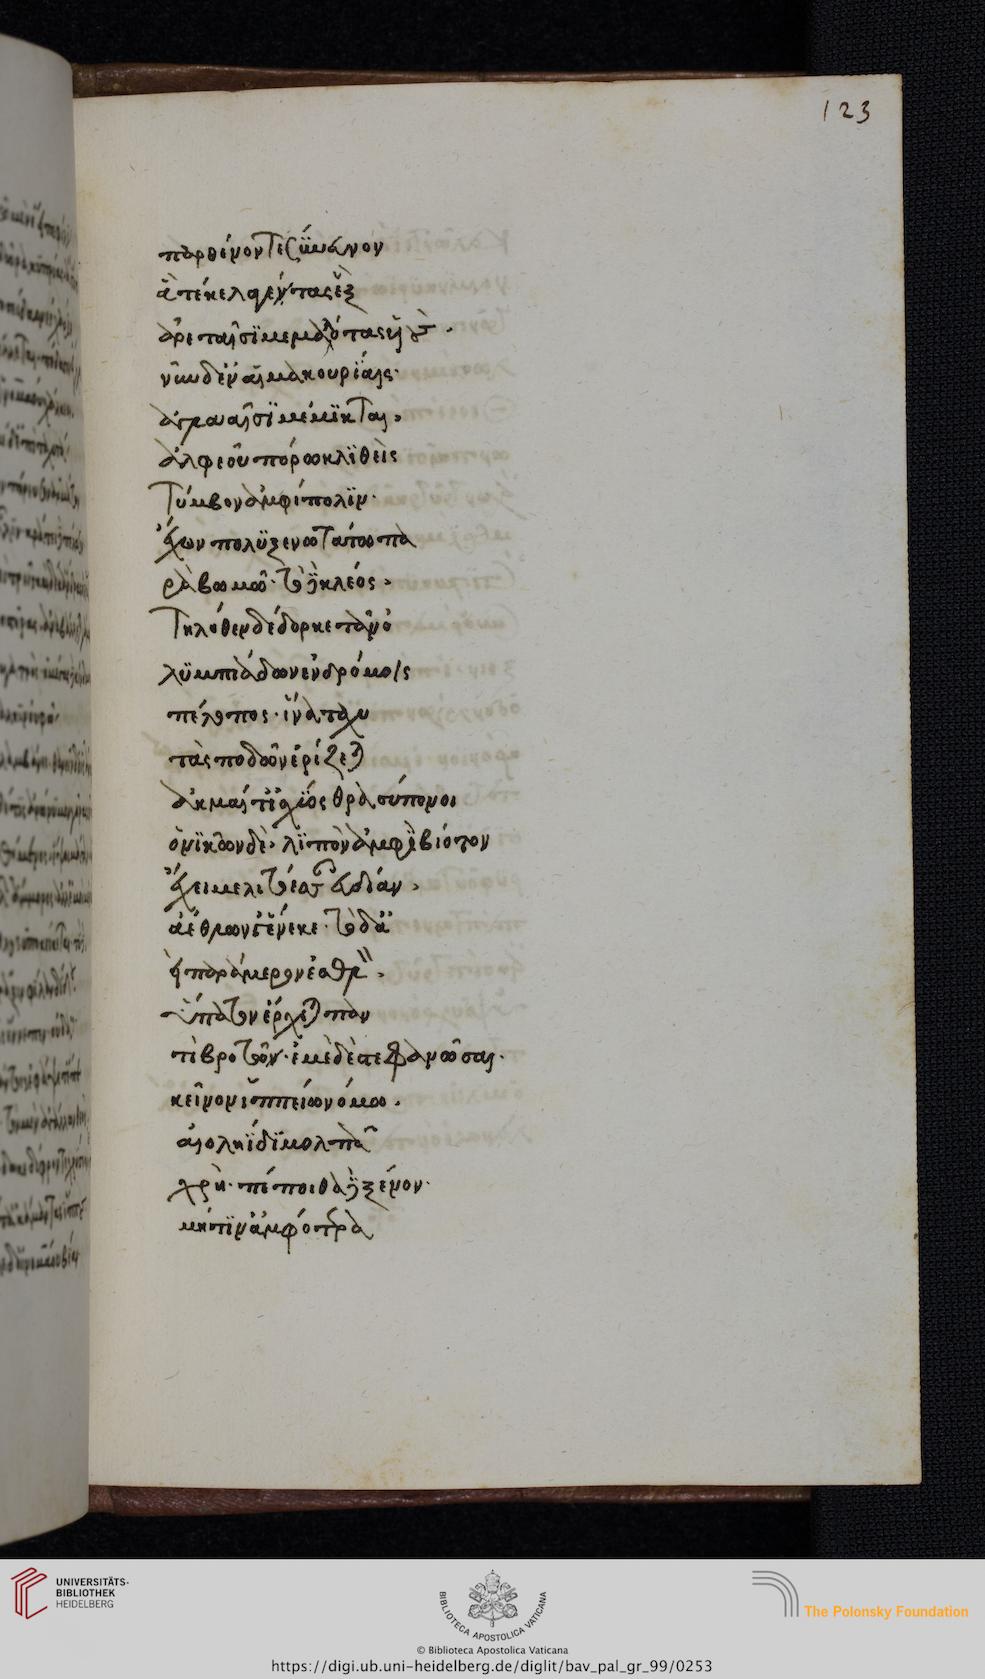 123
παρθένον τε σύνευνον
ἃ τέκε λαγέντας ἓξ
ἀρεταῖσι μεμαότας υἱούς.
νῦν δ' ἐν αἱμακουρίαις·
ἀγλααῖσι μέμικται,
ἀλφεοῦ πόρω κλιθεὶς
τύμβον ἀμφίπολιν·
ἔχων πολυξενωτάτω πα
ρὰ βωμῶ· τὸ δὲ κλέος,
τηλόθεν δέδορκε τᾶν ὀ
λυμπιάδων ἐν δρόμοις
πέλοπος· ἵνα ταχυ
τὰς ποδῶν ἐρίζεται
ἀκμαί τ' ἰσχύος θρασύπονοι
ὁ νικῶν δὲ, λοιπὸν ἀμφὶ βίοτον
ἔχει μελιτόεσσαν εὐδίαν,
ἀέθλων γ' ἕνεκεν· τὸ δ' αἰ
εὶ παράμερον ἐσθλὸν,
ὕπατον ἔρχεται παν
τὶ βροτῶν· ἐμὲ δὲ στεφανῶσαι·
κεῖνον ἱππείω νόμω,
αἰοληΐδι μολπᾶ
χρή· πέποιθα δὲ ξένον·
μή τιν' ἀμφότερα
UNIVERSITÄTS-
BIBLIOTHEK
HEIDELBERG
BIBLIOTECA APOSTOLICA VATICANA
The Polonsky Foundation
© Biblioteca Apostolica Vaticana
https://digi.ub.uni-heidelberg.de/diglit/bav_pal_gr_99/0253